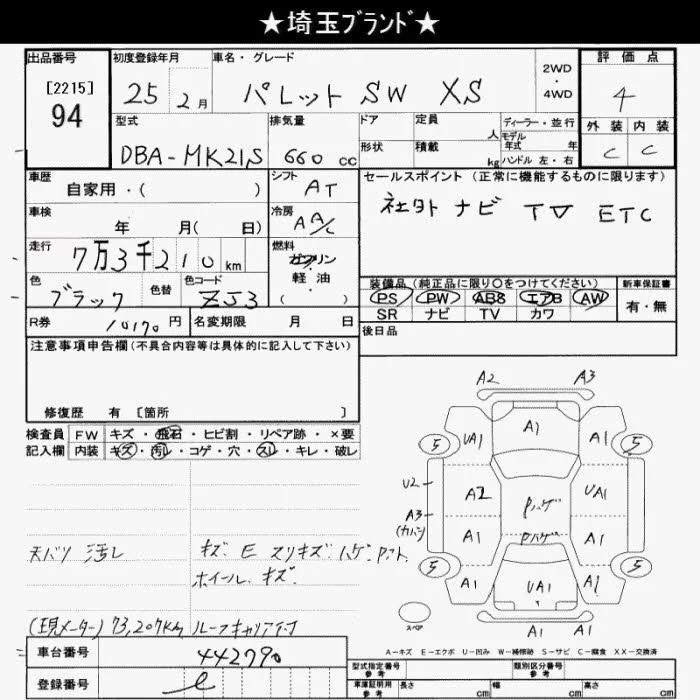 ★埼玉ブランド★
出品番号 初度登録年月 車名・グレード 2WD・4WD 評価点
[2215]
94 25年 2月 パレット SW XS 4
型式 排気量 ドア 定員 人 ディーラー・並行 外装 内装
DBA-MK21S 660 cc 形状 積載 kg モデル年式 年 ハンドル 左・右 C C
車歴 シフト セールスポイント (正常に機能するものに限ります)
自家用・( ) AT 社外 ナビ TV ETC
車検 冷房
年 月( 日) AA/C
走行 燃料
7万3千210km ガソリン・軽油・
色 色替 色コード 装備品 (純正品に限り○をつけてください) 新車保証書
ブラック ZJ3 PS PW ABS エアB AW 有・無
SR ナビ TV カワ
R券 10170円 名変期限 月 日 後日品
注意事項申告欄(不具合内容等は具体的に記入して下さい)
修復歴 有 [箇所 ]
検査員 FW キズ・飛石・ヒビ割・リペア跡・×要
記入欄 内装 キズ・汚レ・コゲ・穴・スレ・キレ・破レ
A2 A3
UA1 A1 A1
5 5
U2 A2 Pハゲ UA1
A3 A1 Pハゲ A1
(カバン)
5 5
A1 UA1 A1 A1
A1 A1
スペア
天バリ 汚レ キズ. E スリキズ. ハゲ. Pアト.
ホイール. キズ.
(現メーター) 73,207km ルーフキャリア付
A-キズ E-エクボ U-凹み W-補修跡 S-サビ C-腐食 XX-交換済
車台番号 442790
登録番号
型式指定番号 参考 類別区分番号 参考
車庫証明用 参考 長さ cm 幅 cm 高さ cm